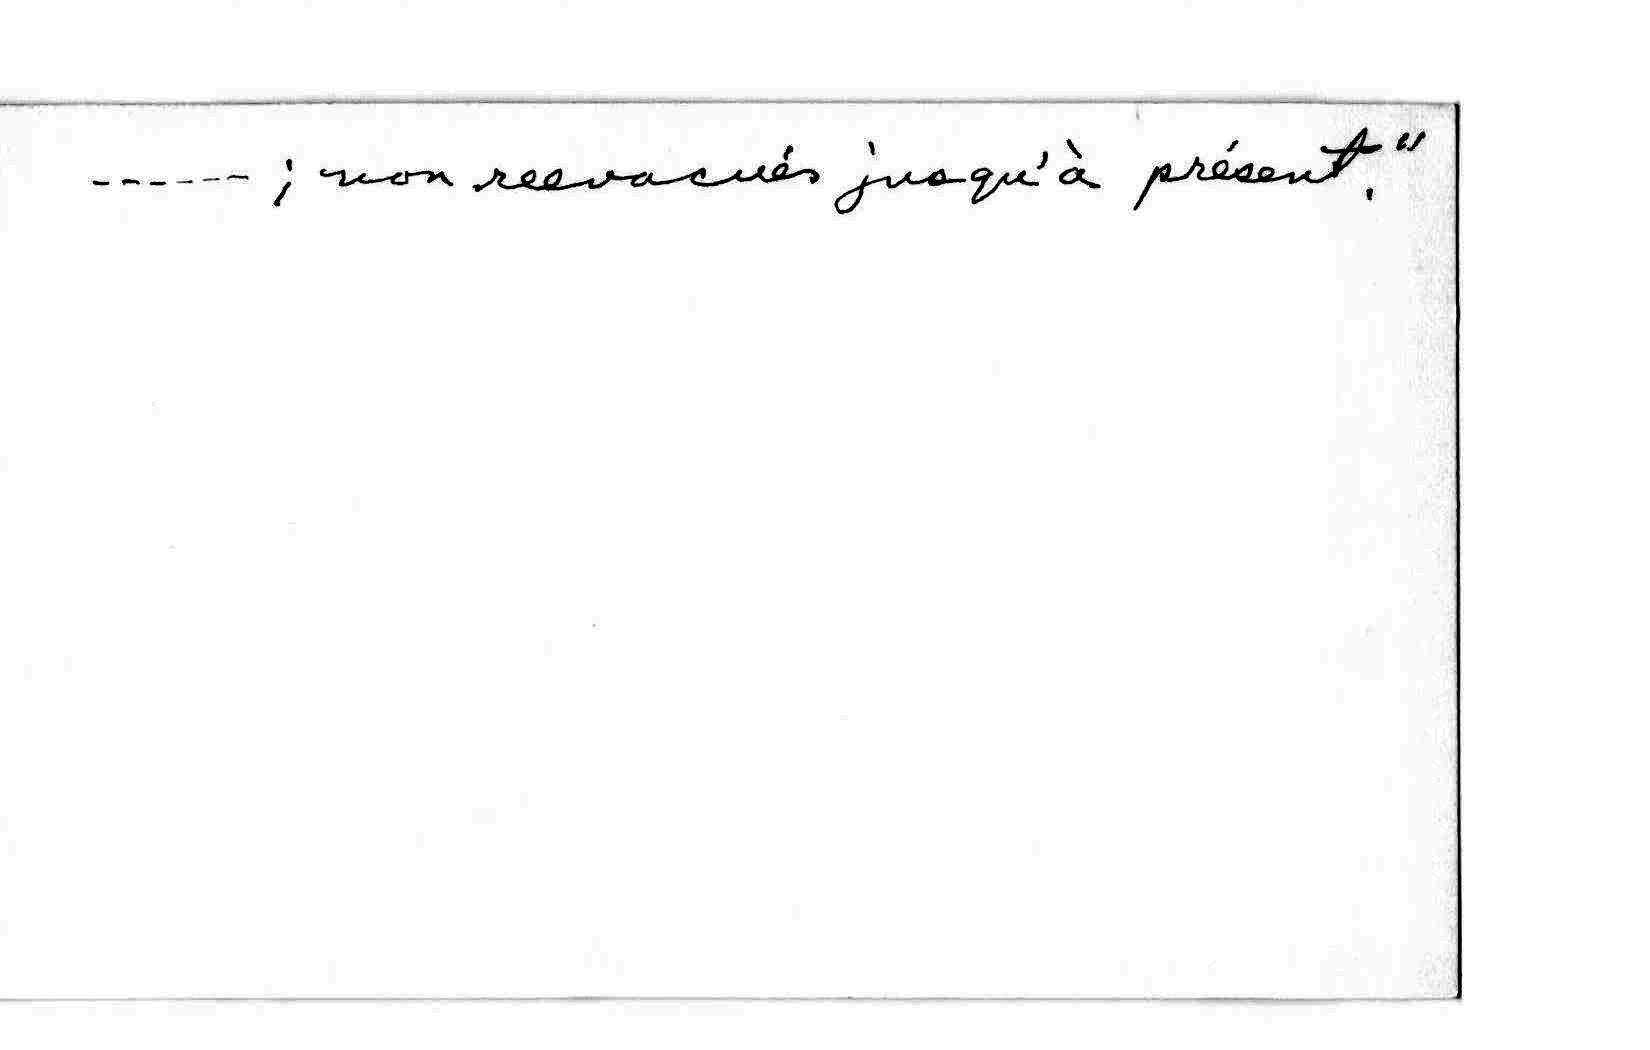 ------ ; non reevacués jusqu'à présent."